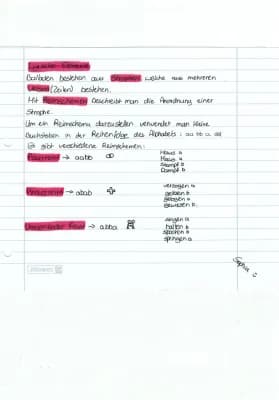 Balladen bestehen aus Strophen welche aus mehreren
Versen (Zeilen) bestehen.
Mit Reimschemen beschreibt man die Anordnung einer
Strophe.
Um ein Reimschema darzustellen verwendet man kleine
Buchstaben in der Reihenfolge des Alphabets: aa bb cc dd
Es gibt verschiedene Reimschemen:
Paarreim → aabb
Haus a
Maus a
Stampf b
Dampf b
Kreuzreim → abab
verbogen a
geblieben b
gezogen a
bewiesen b
Umarmender Reim → abba
singen a
halten b
spalten b
springen a
Sophia